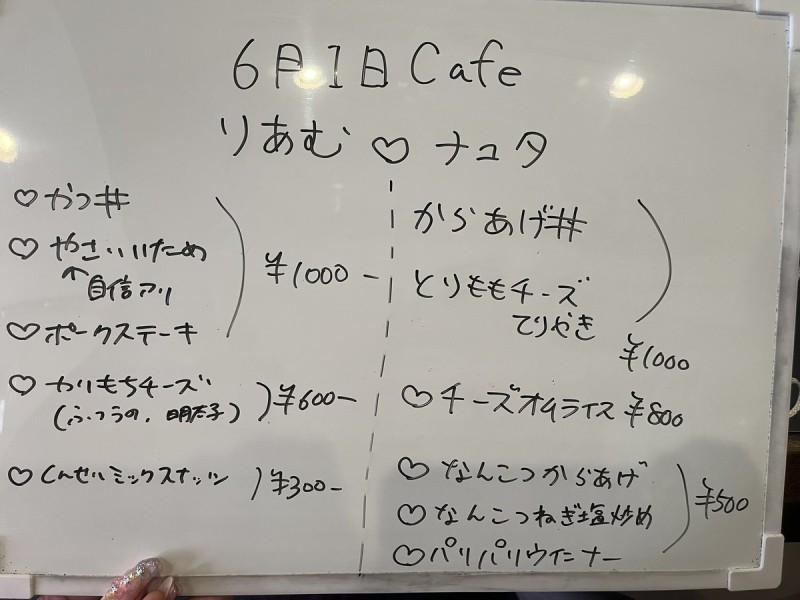 6月1日 Cafe
りあむ ♡ ナユタ
♡ かつ丼
♡ やさいいため
↑自信アリ
♡ ポークステーキ
¥1000-
♡ かりもちチーズ
(ふつうの、明太子) ¥600-
♡ くんせいミックスナッツ ¥300-
からあげ丼
とりももチーズ
てりやき
¥1000
♡ チーズオムライス ¥800
♡ なんこつからあげ
♡ なんこつねぎ塩炒め
♡ パリパリウインナー
¥500